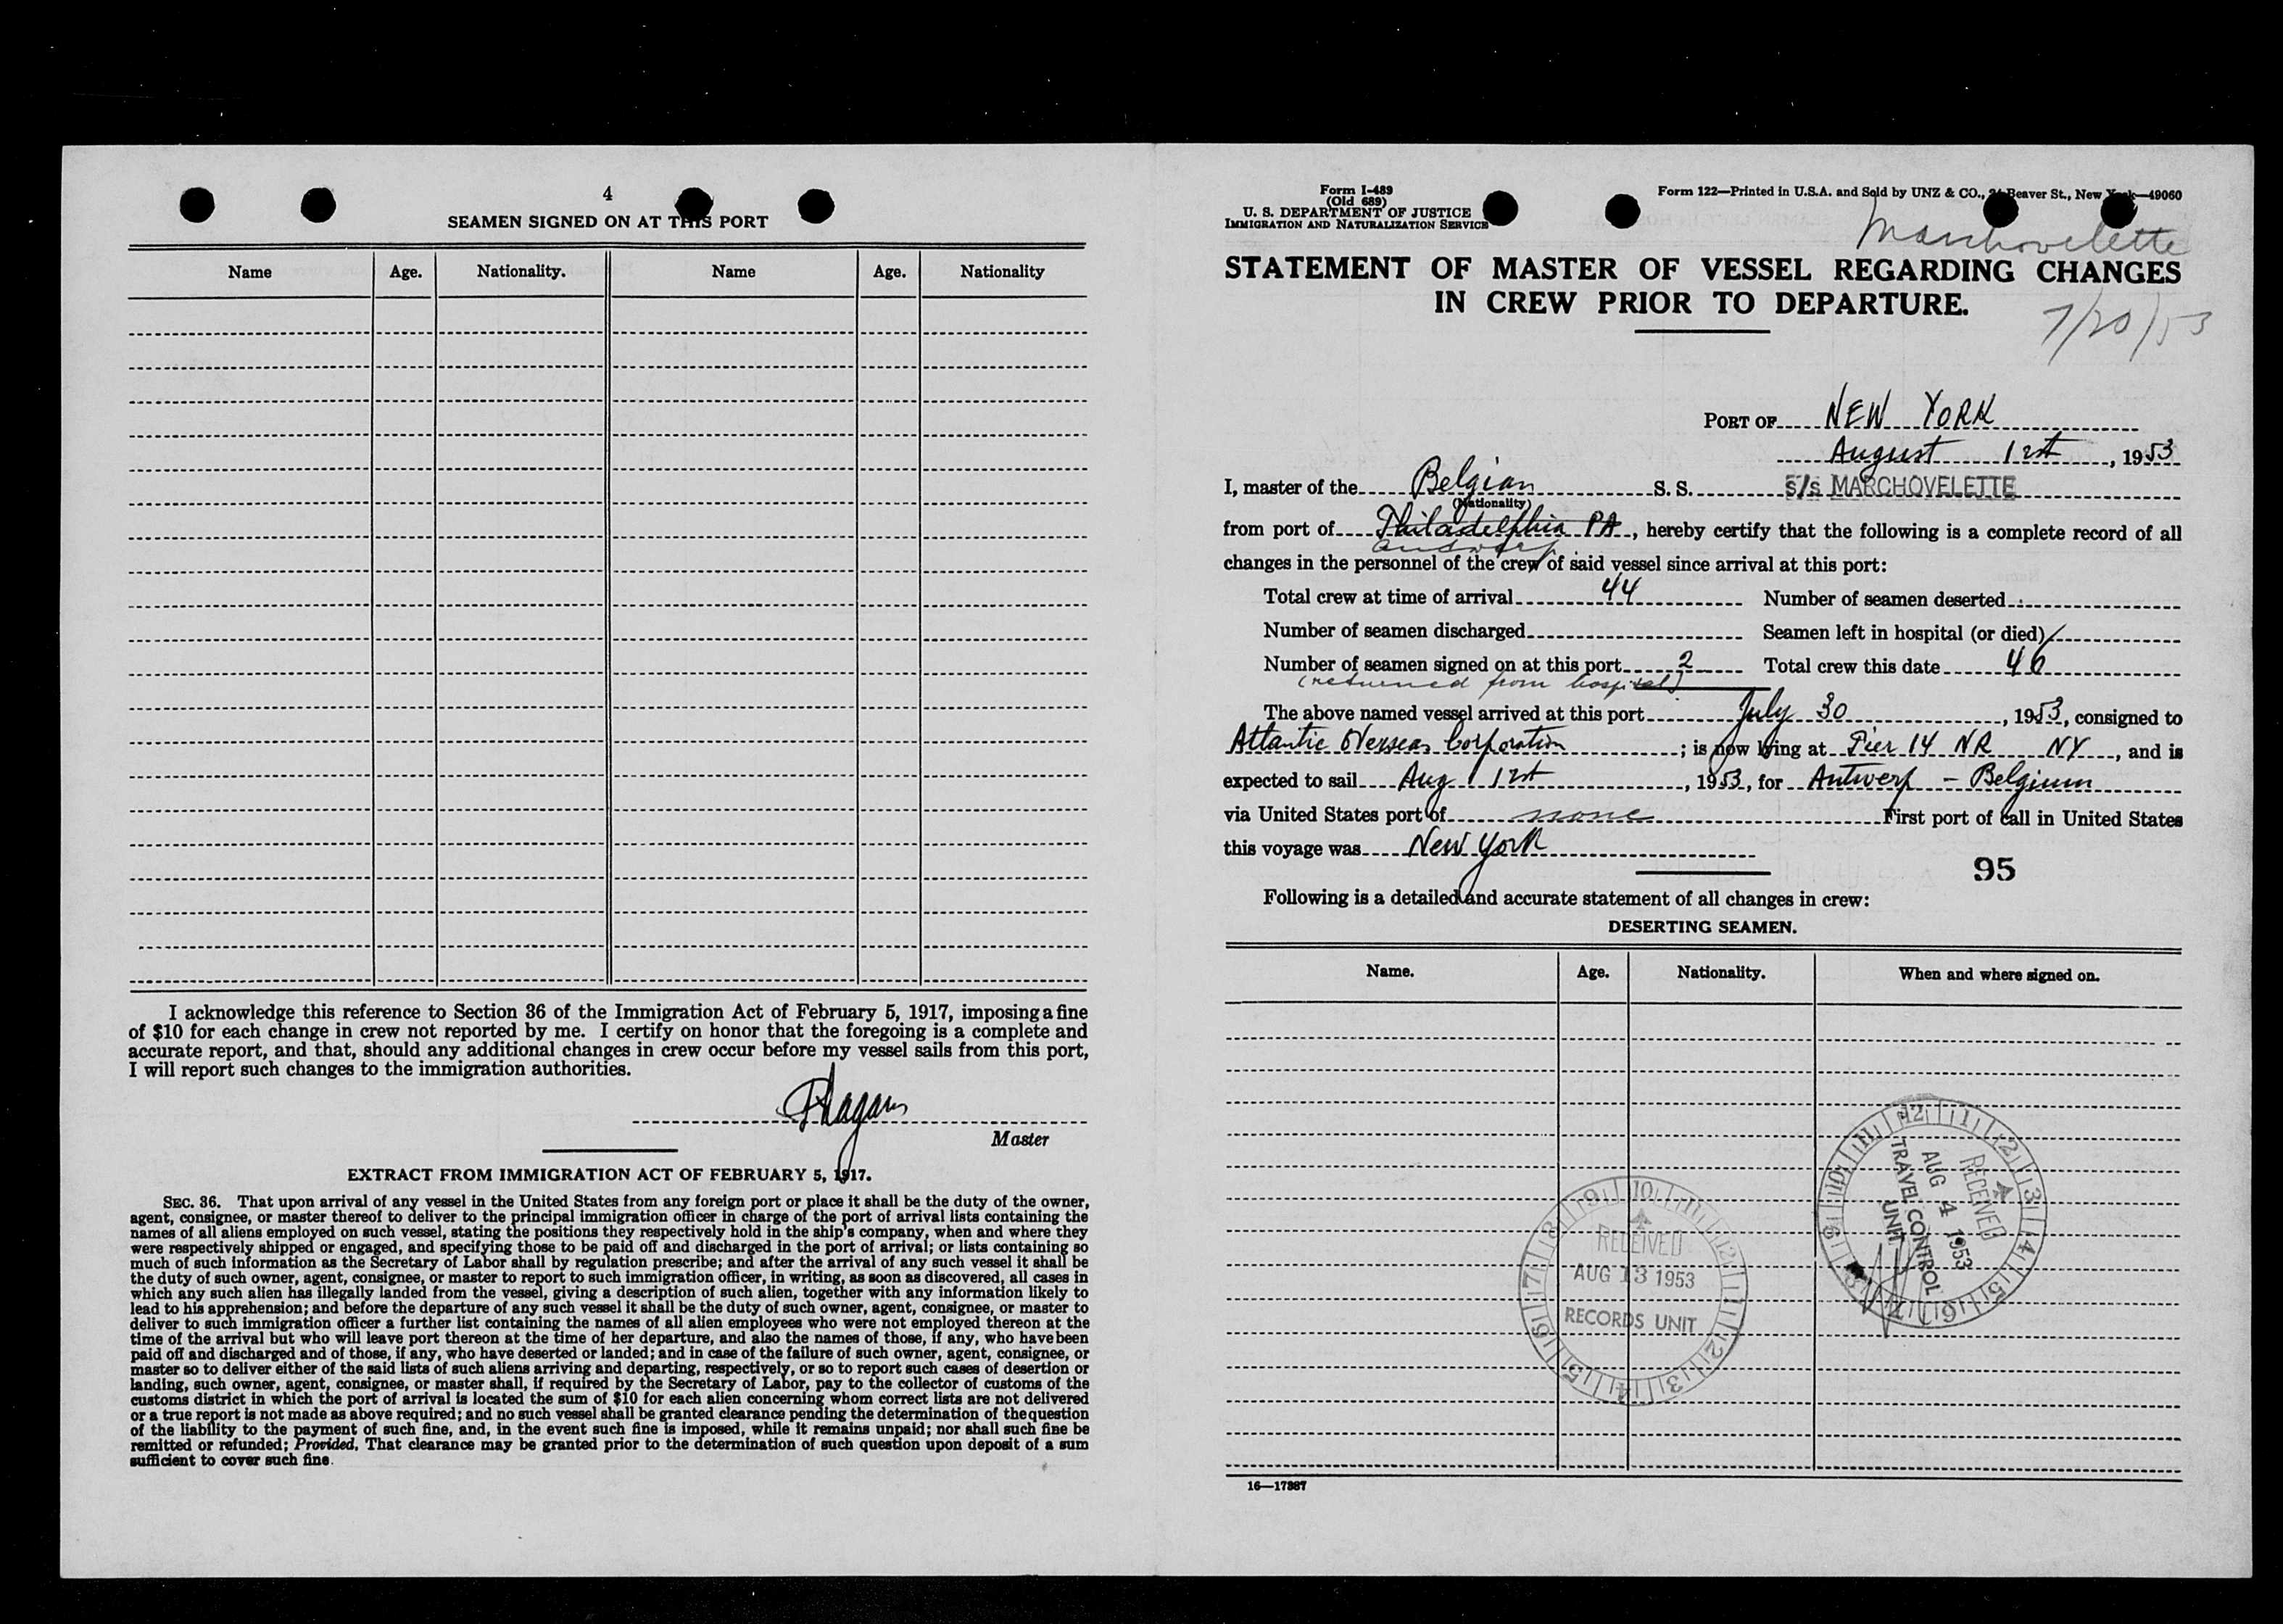 4
SEAMEN SIGNED ON AT THIS PORT
Name Age. Nationality. Name Age. Nationality
I acknowledge this reference to Section 36 of the Immigration Act of February 5, 1917, imposing a fine
of $10 for each change in crew not reported by me. I certify on honor that the foregoing is a complete and
accurate report, and that, should any additional changes in crew occur before my vessel sails from this port,
I will report such changes to the immigration authorities.
Master
EXTRACT FROM IMMIGRATION ACT OF FEBRUARY 5, 1917.
SEC. 36. That upon arrival of any vessel in the United States from any foreign port or place it shall be the duty of the owner,
agent, consignee, or master thereof to deliver to the principal immigration officer in charge of the port of arrival lists containing the
names of all aliens employed on such vessel, stating the positions they respectively hold in the ship's company, when and where they
were respectively shipped or engaged, and specifying those to be paid off and discharged in the port of arrival; or lists containing so
much of such information as the Secretary of Labor shall by regulation prescribe; and after the arrival of any such vessel it shall be
the duty of such owner, agent, consignee, or master to report to such immigration officer, in writing, as soon as discovered, all cases in
which any such alien has illegally landed from the vessel, giving a description of such alien, together with any information likely to
lead to his apprehension; and before the departure of any such vessel it shall be the duty of such owner, agent, consignee, or master to
deliver to such immigration officer a further list containing the names of all alien employees who were not employed thereon at the
time of the arrival but who will leave port thereon at the time of her departure, and also the names of those, if any, who have been
paid off and discharged and of those, if any, who have deserted or landed; and in case of the failure of such owner, agent, consignee, or
master so to deliver either of the said lists of such aliens arriving and departing, respectively, or so to report such cases of desertion or
landing, such owner, agent, consignee, or master shall, if required by the Secretary of Labor, pay to the collector of customs of the
customs district in which the port of arrival is located the sum of $10 for each alien concerning whom correct lists are not delivered
or a true report is not made as above required; and no such vessel shall be granted clearance pending the determination of the question
of the liability to the payment of such fine, and, in the event such fine is imposed, while it remains unpaid; nor shall such fine be
remitted or refunded; Provided, That clearance may be granted prior to the determination of such question upon deposit of a sum
sufficient to cover such fine.
Form I-489
(Old 689)
U. S. DEPARTMENT OF JUSTICE
IMMIGRATION AND NATURALIZATION SERVICE
Form 122—Printed in U.S.A. and Sold by UNZ & CO., 24 Beaver St., New York—49060
Marchovelette
STATEMENT OF MASTER OF VESSEL REGARDING CHANGES
IN CREW PRIOR TO DEPARTURE.
7/20/53
PORT OF NEW YORK
August 1st, 1953
I, master of the Belgian S. S. S/S MARCHOVELETTE
(Nationality)
from port of Philadelphia PA, hereby certify that the following is a complete record of all
Antwerp
changes in the personnel of the crew of said vessel since arrival at this port:
Total crew at time of arrival 44 Number of seamen deserted
Number of seamen discharged Seamen left in hospital (or died) /
Number of seamen signed on at this port 2 Total crew this date 46
(returned from hospital)
The above named vessel arrived at this port July 30, 1953, consigned to
Atlantic Overseas Corporation; is now lying at Pier 14 NR NY, and is
expected to sail Aug 1st, 1953, for Antwerp - Belgium
via United States port of none First port of call in United States
this voyage was New York
95
Following is a detailed and accurate statement of all changes in crew:
DESERTING SEAMEN.
Name. Age. Nationality. When and where signed on.
RECEIVED
AUG 4 1953
TRAVEL CONTROL
UNIT
RECEIVED
AUG 13 1953
RECORDS UNIT
16—17887